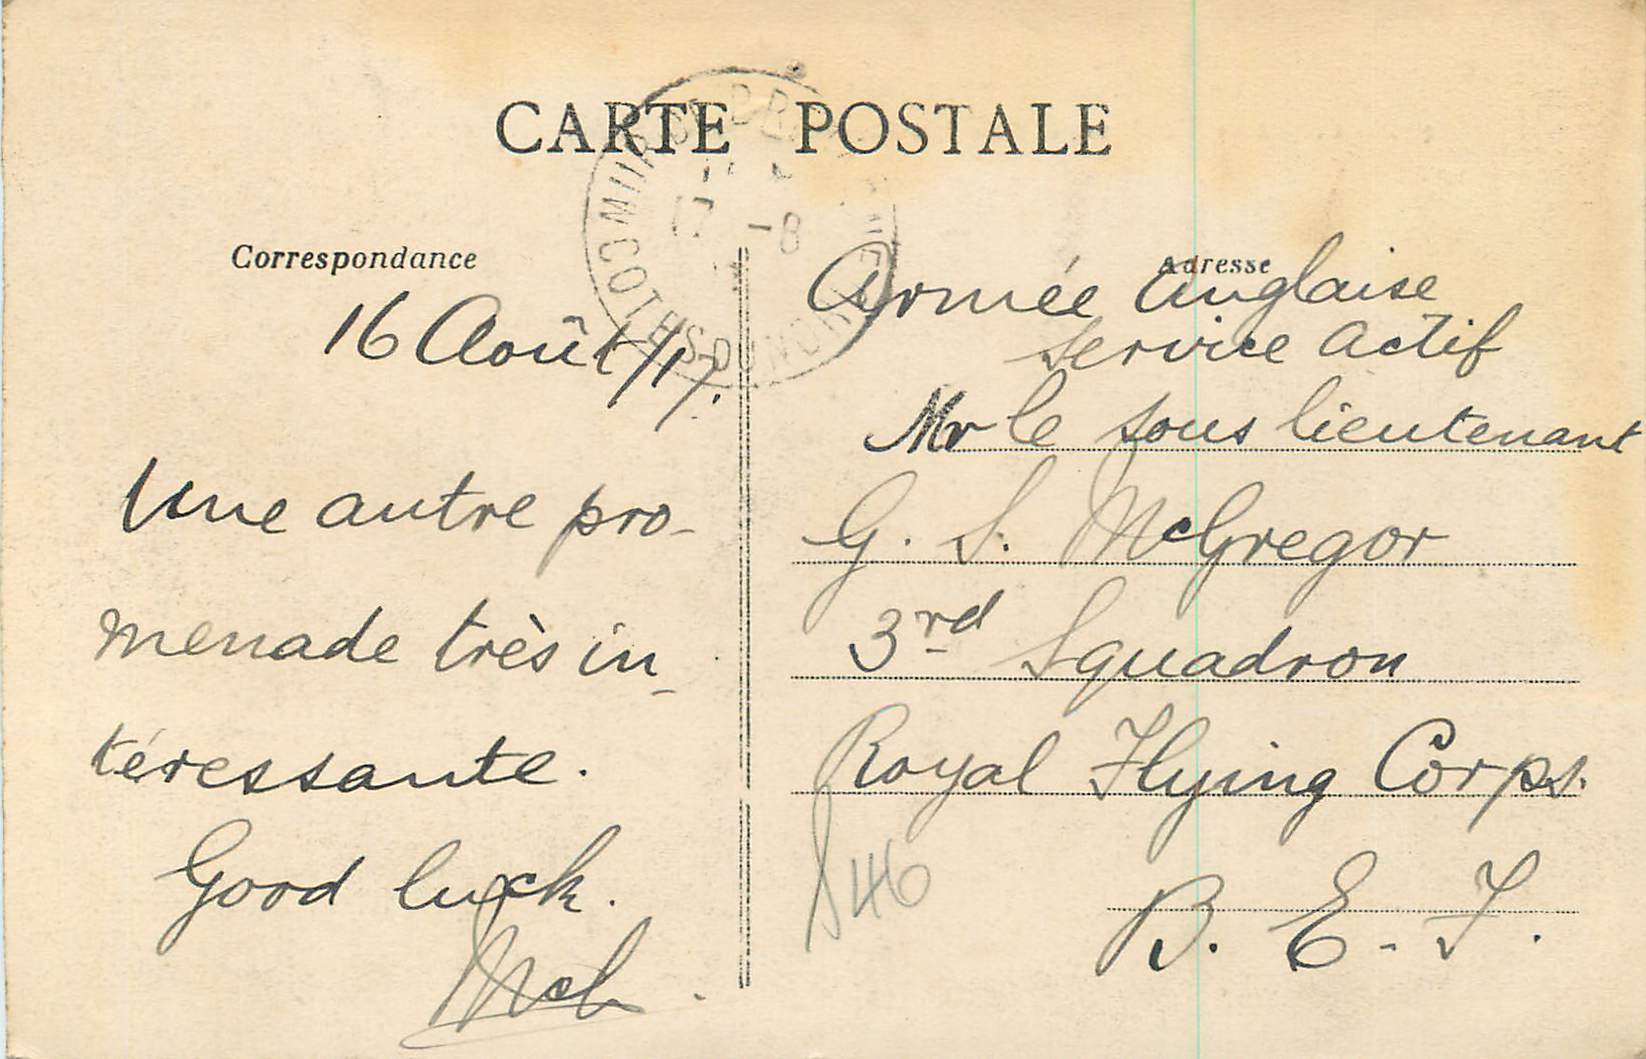 CARTE POSTALE
Correspondance
16 Août/17.
Une autre pro-
menade très in-
téressante.
Good luck.
17 -8
Adresse
Armée Anglaise
Service Actif
Mr le sous lieutenant
G. S. McGregor
3rd Squadron
Royal Flying Corps.
B. E. F.